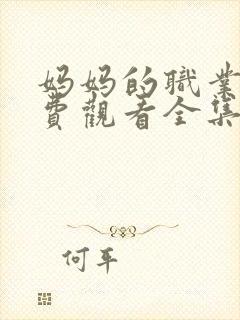 妈妈的職業
費觀看全集
何平